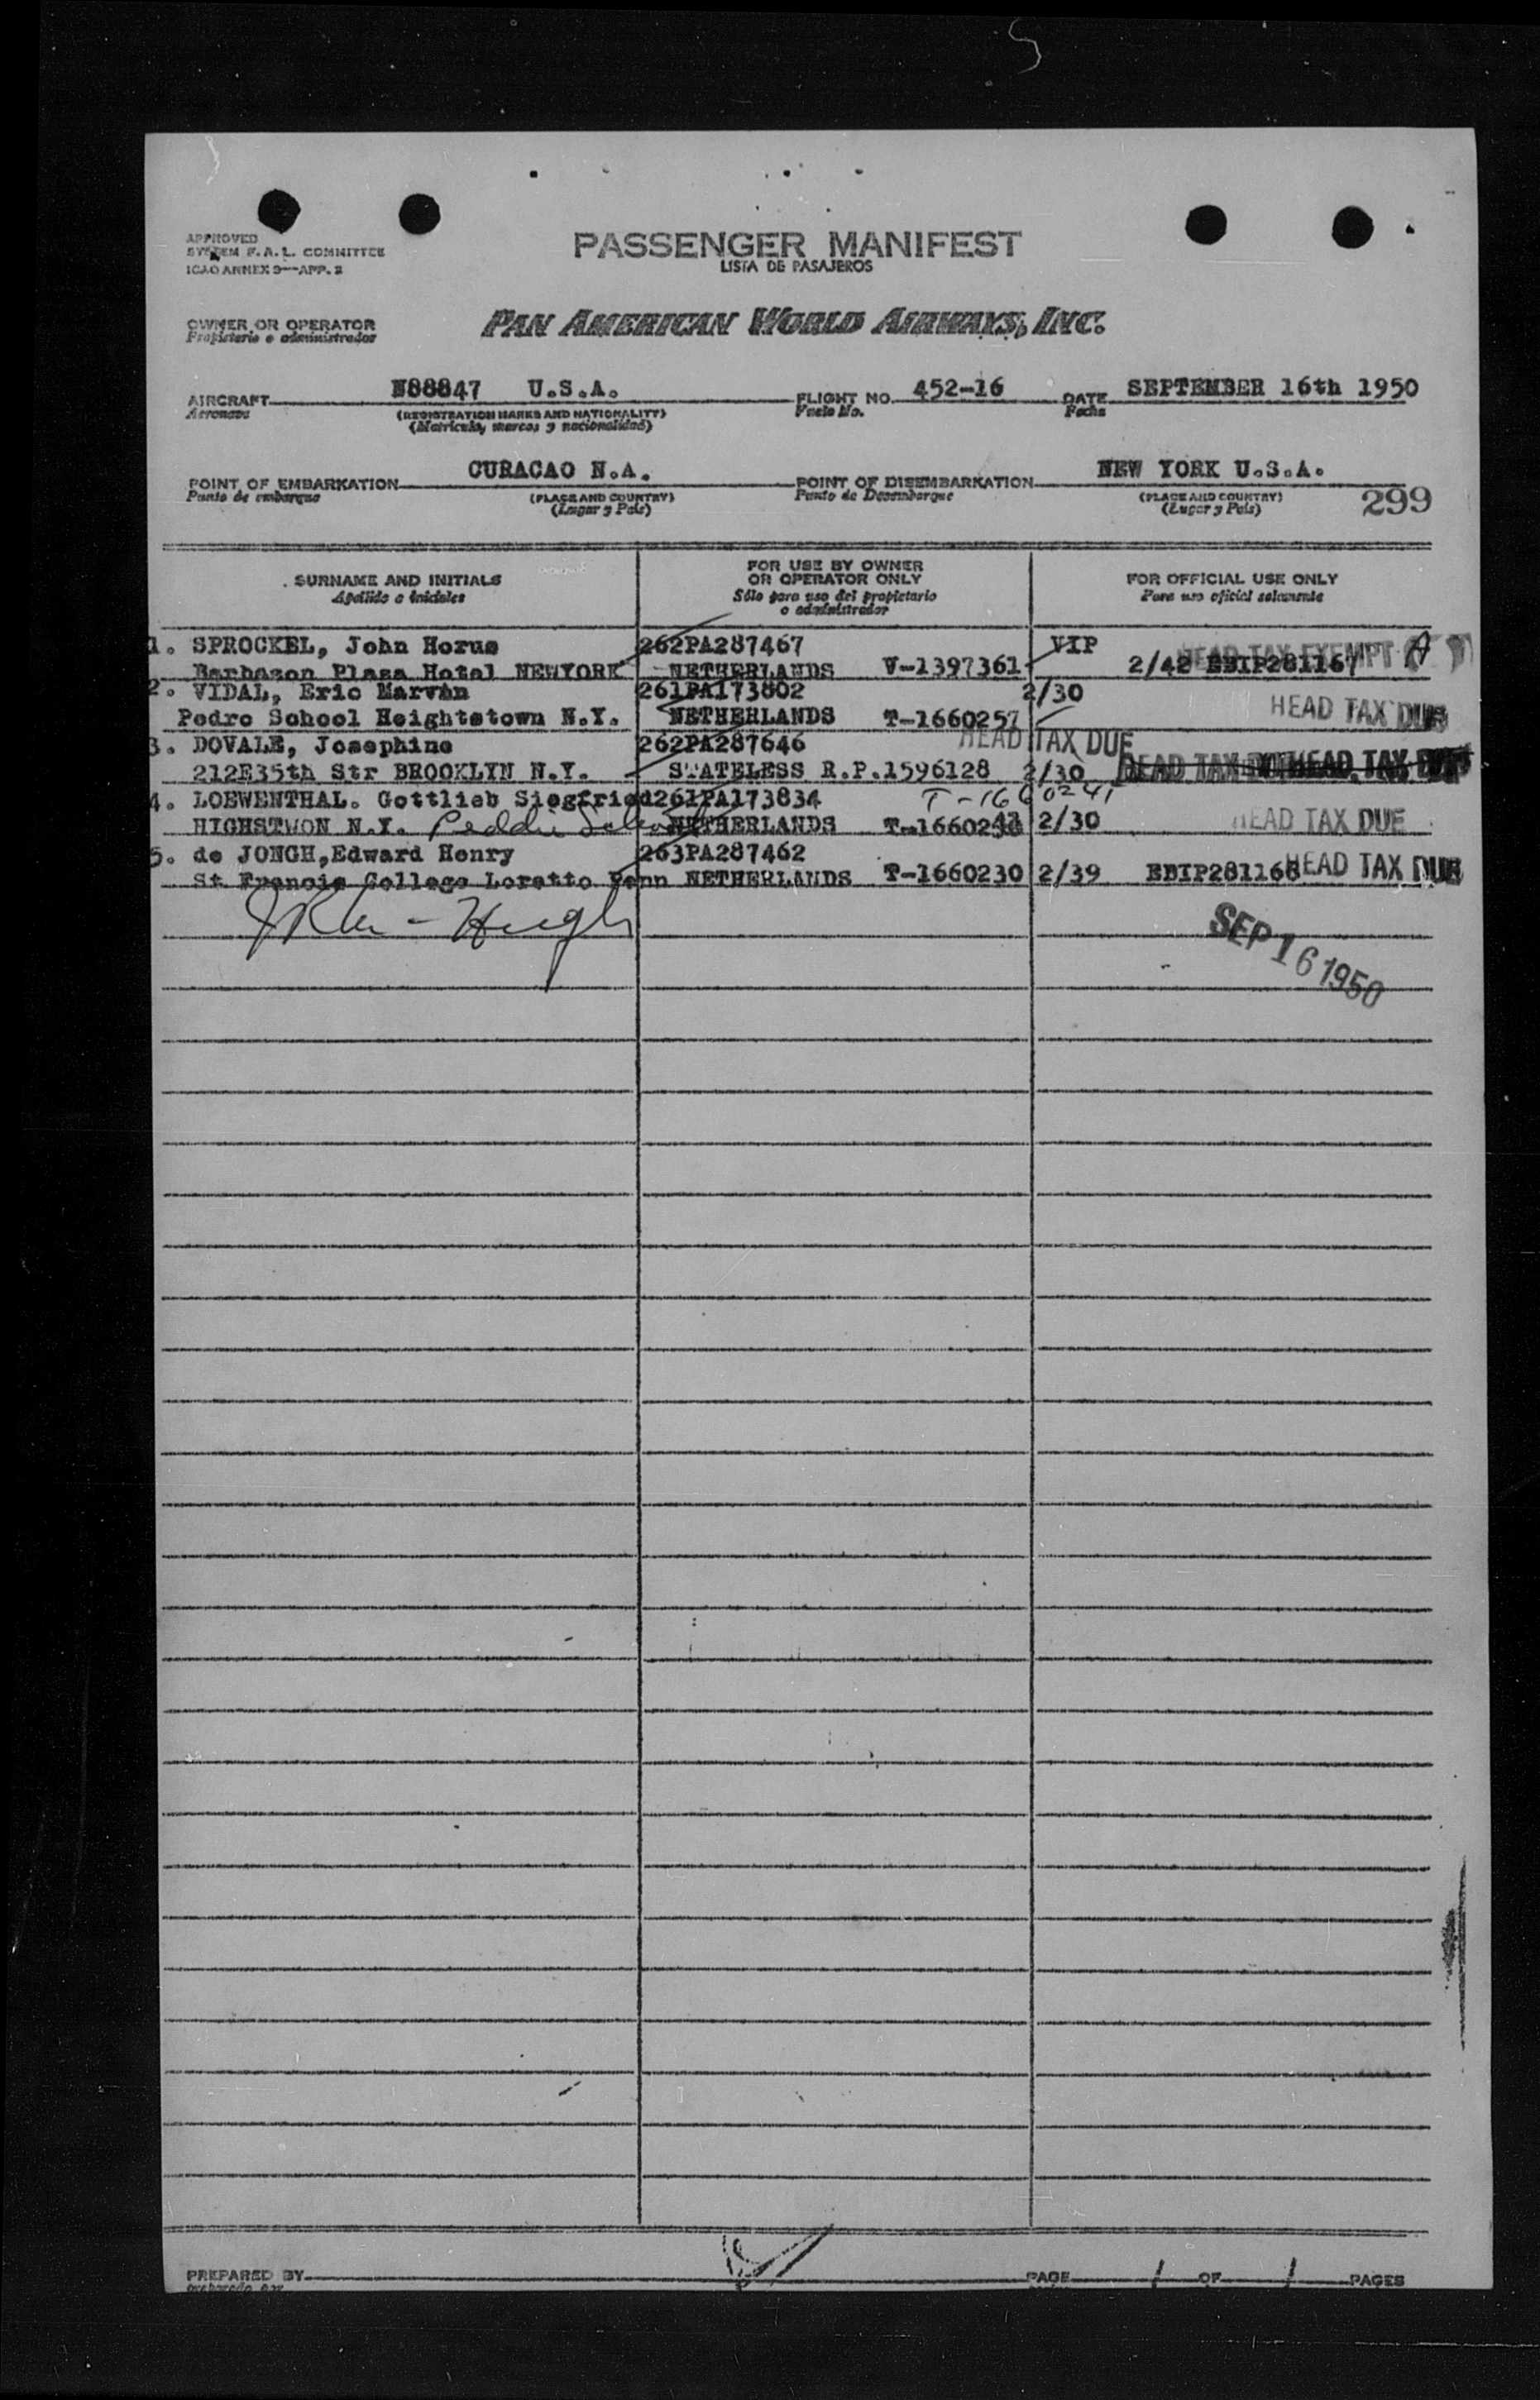 APPROVED
SYSTEM F.A.L. COMMITTEE
ICAO ANNEX 9—APP. 2
PASSENGER MANIFEST
LISTA DE PASAJEROS
OWNER OR OPERATOR
Propietario o administrador
PAN AMERICAN WORLD AIRWAYS, INC.
AIRCRAFT N88847 U.S.A. FLIGHT NO. 452-16 DATE SEPTEMBER 16th 1950
Aeronave (REGISTRATION MARKS AND NATIONALITY) Vuelo No. Fecha
(Matricula, marcas y nacionalidad)
POINT OF EMBARKATION CURACAO N.A. POINT OF DISEMBARKATION NEW YORK U.S.A.
Punto de embarque (PLACE AND COUNTRY) Punto de Desembarque (PLACE AND COUNTRY)
(Lugar y País) (Lugar y País) 299
SURNAME AND INITIALS FOR USE BY OWNER OR OPERATOR ONLY FOR OFFICIAL USE ONLY
Apellido e iniciales Sólo para uso del propietario o administrador Para uso oficial solamente
1. SPROCKEL, John Horus 262PA287467 VIP HEAD TAX EXEMPT
Barbazon Plaza Hotel NEWYORK NETHERLANDS V-1397361 2/42 EBIP281167
2. VIDAL, Eric Marvin 261PA173802 2/30
Pedro School Heightstown N.Y. NETHERLANDS T-1660257 HEAD TAX DUE
3. DOVALE, Josephine 262PA287646 HEAD TAX DUE
212E35th Str BROOKLYN N.Y. STATELESS R.P.1596128 2/30 HEAD TAX DUE HEAD TAX DUE
4. LOEWENTHAL. Gottlieb Siegfried 261PA173834 T-1660241
HIGHSTWON N.Y. Peddie School NETHERLANDS T-16602 41 2/30 HEAD TAX DUE
5. de JONGH,Edward Henry 263PA287462
St Francis College Loretto Penn NETHERLANDS T-1660230 2/39 EBIP281168 HEAD TAX DUE
SEP 16 1950
PREPARED BY PAGE 1 OF 1 PAGES
preparado por